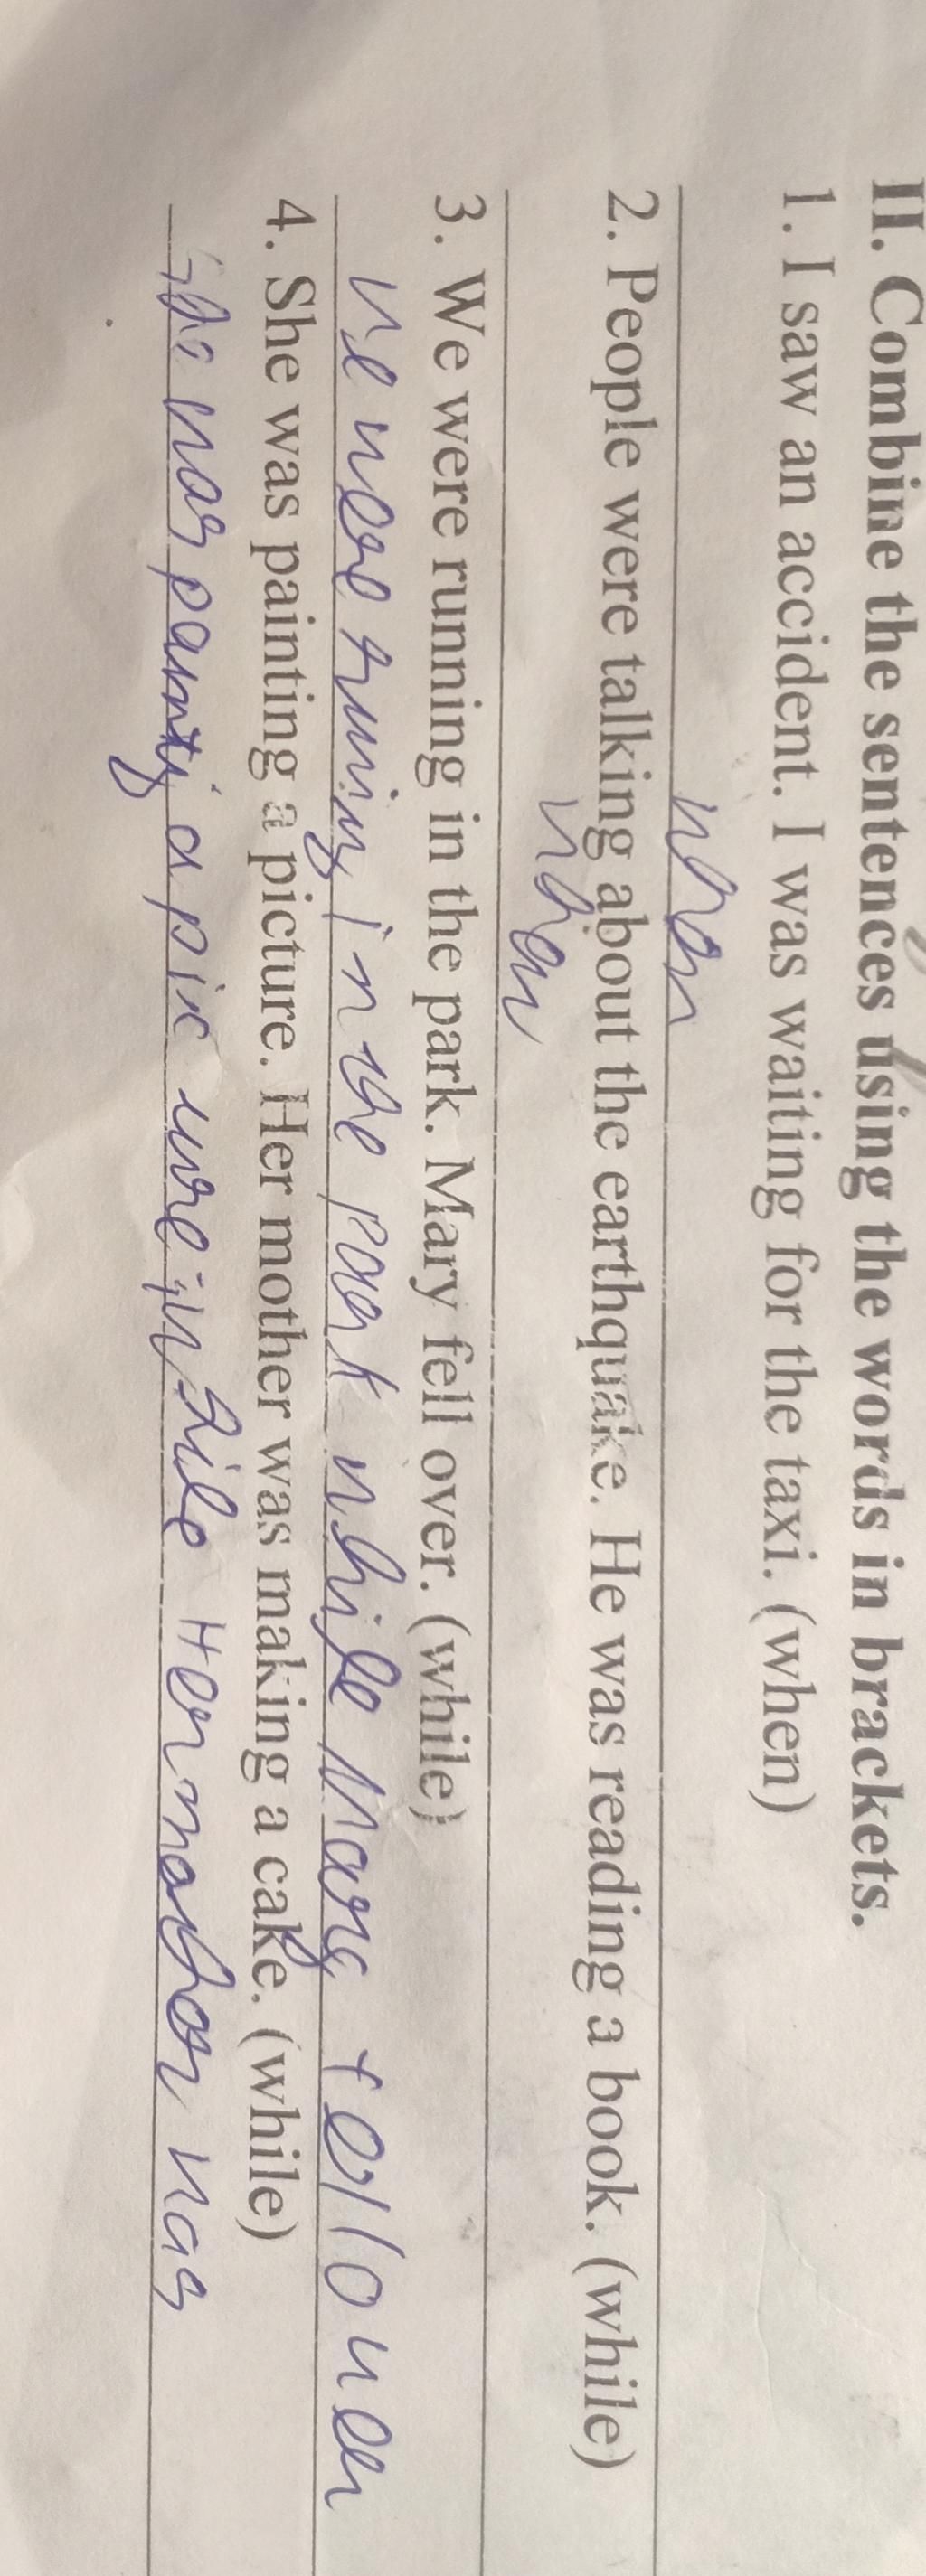 II. Combine the sentences using the words in brackets.
1. I saw an accident. I was waiting for the taxi. (when)
when
2. People were talking about the earthquake. He was reading a book. (while)
when
3. We were running in the park. Mary fell over. (while)
we were runing in the park while Mary fell over
4. She was painting a picture. Her mother was making a cake. (while)
was a pic while Her mother was